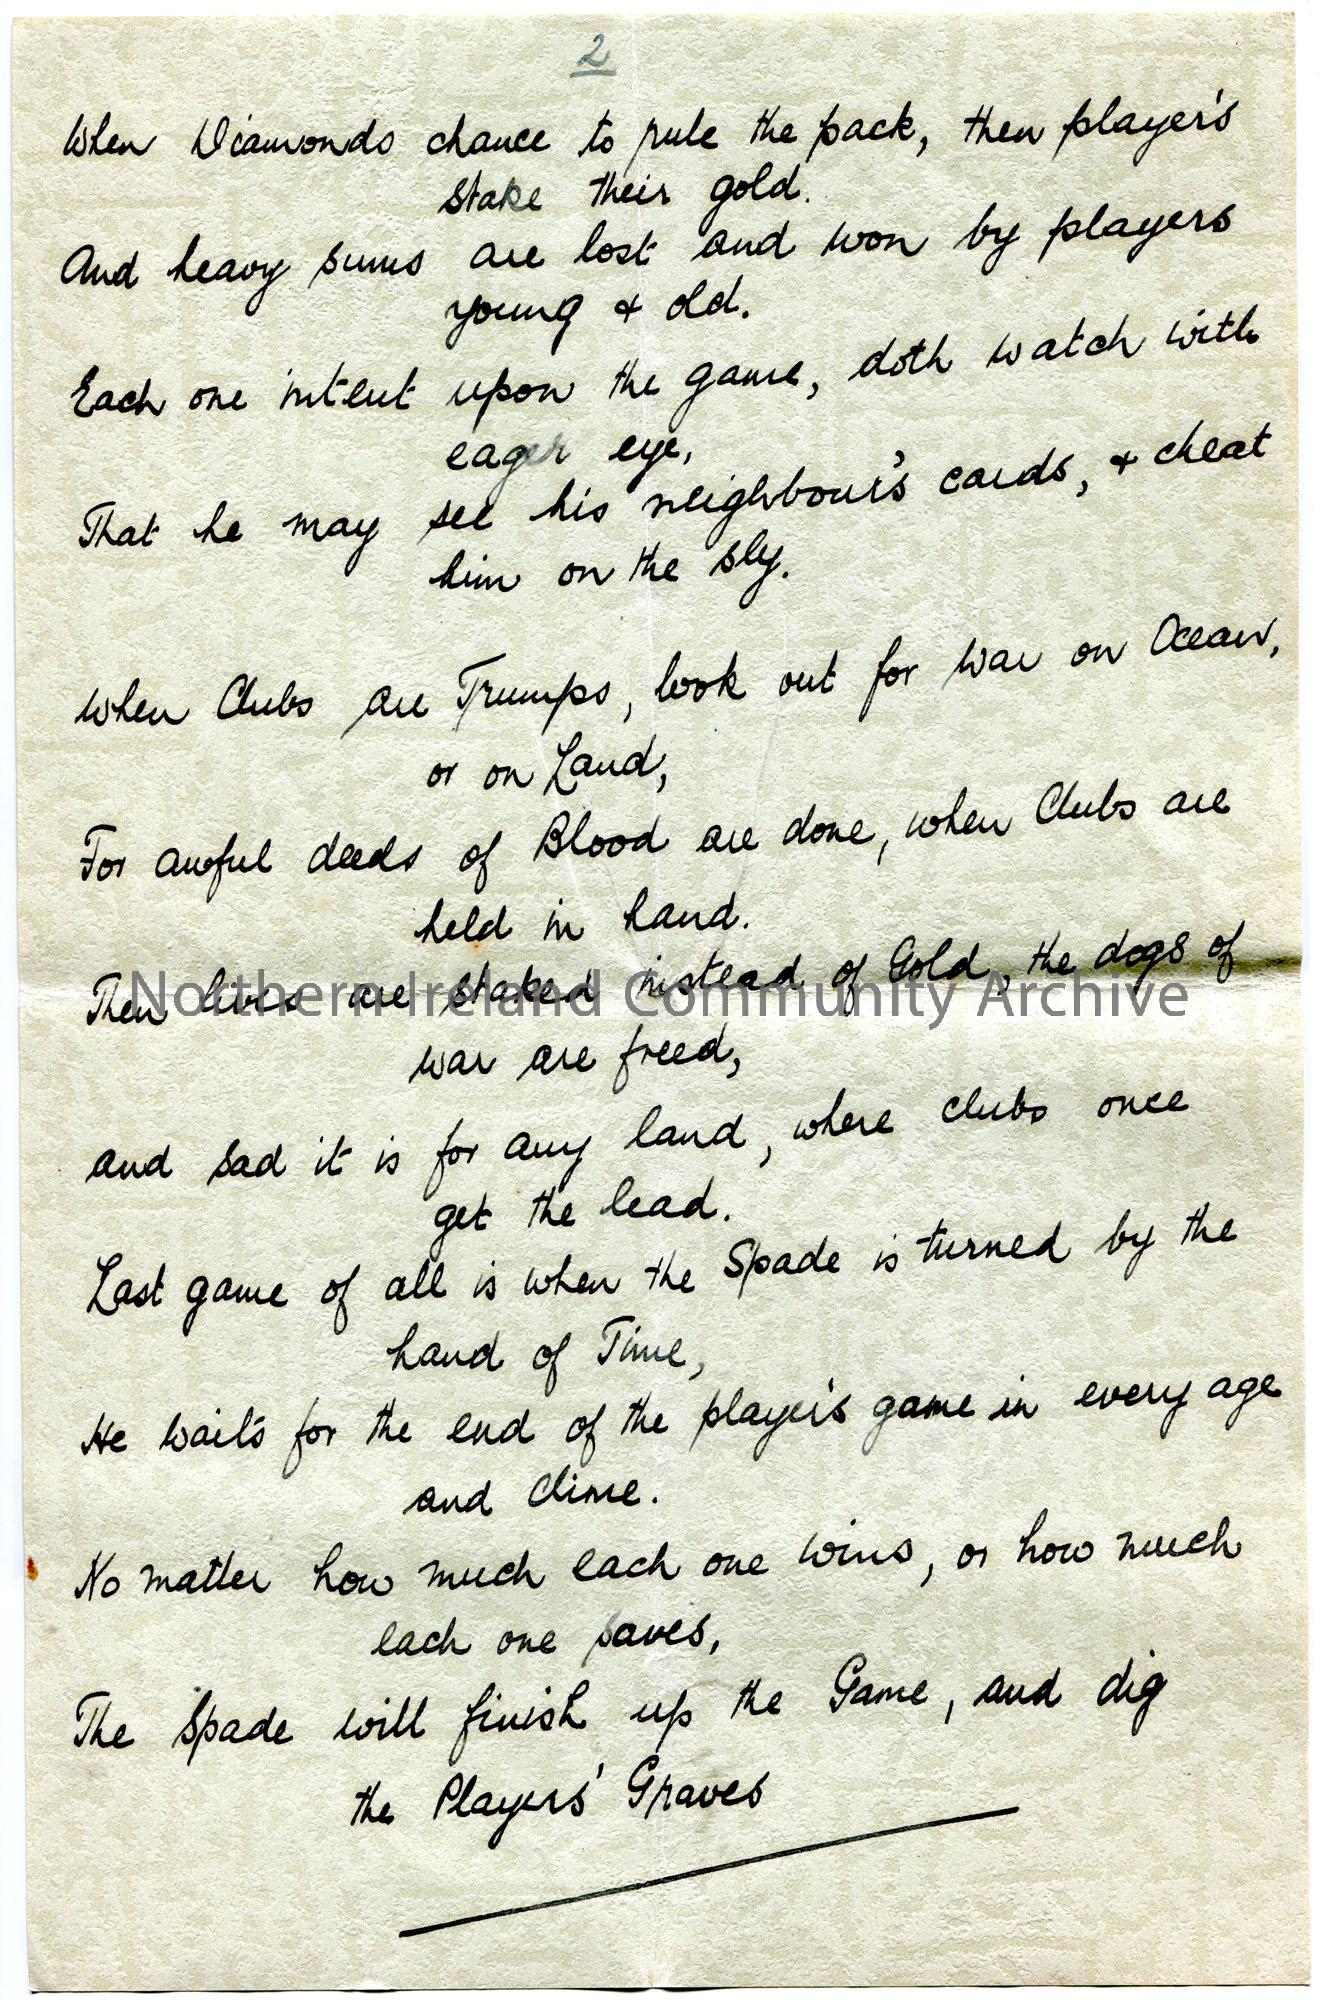 2
When Diamonds chance to rule the pack, then player's
stake their gold.
And heavy sums are lost and won by players
young & old.
Each one intent upon the game, doth watch with
eager eye,
That he may see his neighbour's cards, & cheat
him on the sly.
When Clubs are Trumps, look out for war on Ocean,
or on Land,
For awful deeds of Blood are done, when Clubs are
held in hand.
Then lives are staked instead of Gold, the dogs of
Northern Ireland Community Archive
war are freed,
and sad it is for any land, where clubs once
get the lead.
Last game of all is when the Spade is turned by the
hand of Time,
He wait's for the end of the player's game in every age
and Clime.
No matter how much each one wins, or how much
each one saves,
The Spade will finish up the Game, and dig
the Players' Graves